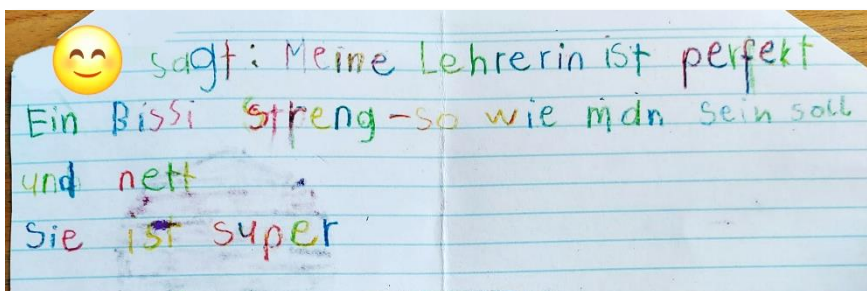 sagt: Meine Lehrerin ist perfekt
Ein Bissi streng - so wie man sein soll
und nett
Sie ist super